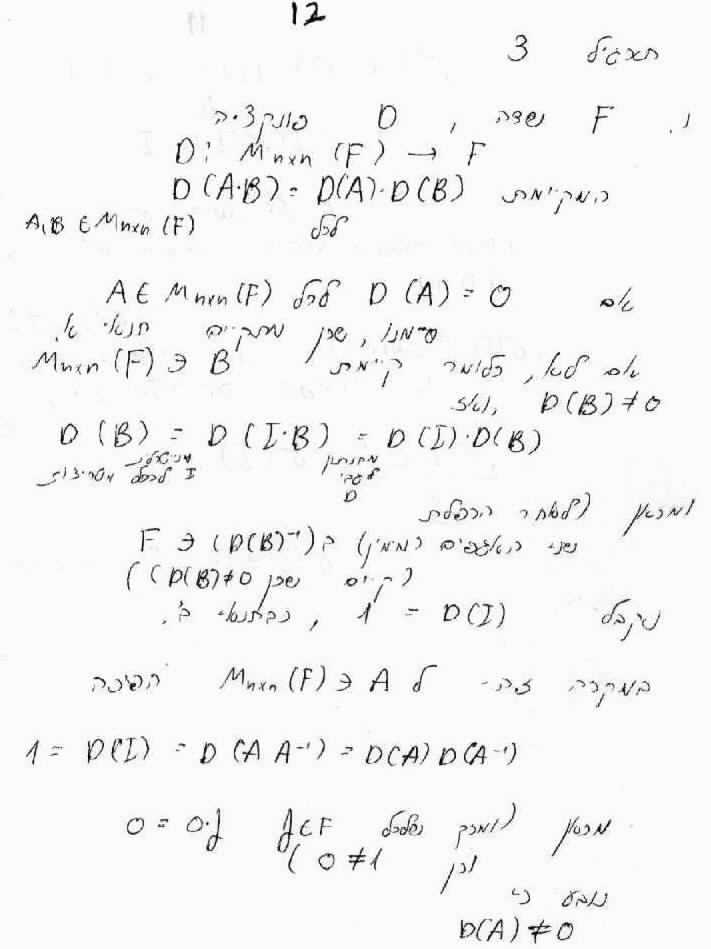 12
תרגיל 3
ו. F שדה, D פונקציה
D: Mnxn (F) → F
המקיימת D(A·B) = D(A)·D(B)
לכל A,B ∈ Mnxn (F)
אם D(A) = 0 לכל A ∈ Mnxn (F)
סיימנו, שכן מתקיים תנאי א.
אם לא, כלומר קיימת Mnxn (F) ∋ B
ואז, D(B) ≠ 0
D(B) = D(I·B) = D(I)·D(B)
מהנתון לגבי D
I לכפל מטריצות
ומכאן (לאחר הכפלת
שני האגפים (מימין) ב (D(B)⁻¹) ∈ F
(קיים שכן D(B) ≠ 0))
נקבל 1 = D(I), כבתנאי ב'.
במקרה זה - ל A ∈ Mnxn (F) הפיכה
1 = D(I) = D(A A⁻¹) = D(A) D(A⁻¹)
מכאן (ומכך שלכל f∈F 0 = 0·f
וכן 0 ≠ 1)
נובע כי
D(A) ≠ 0